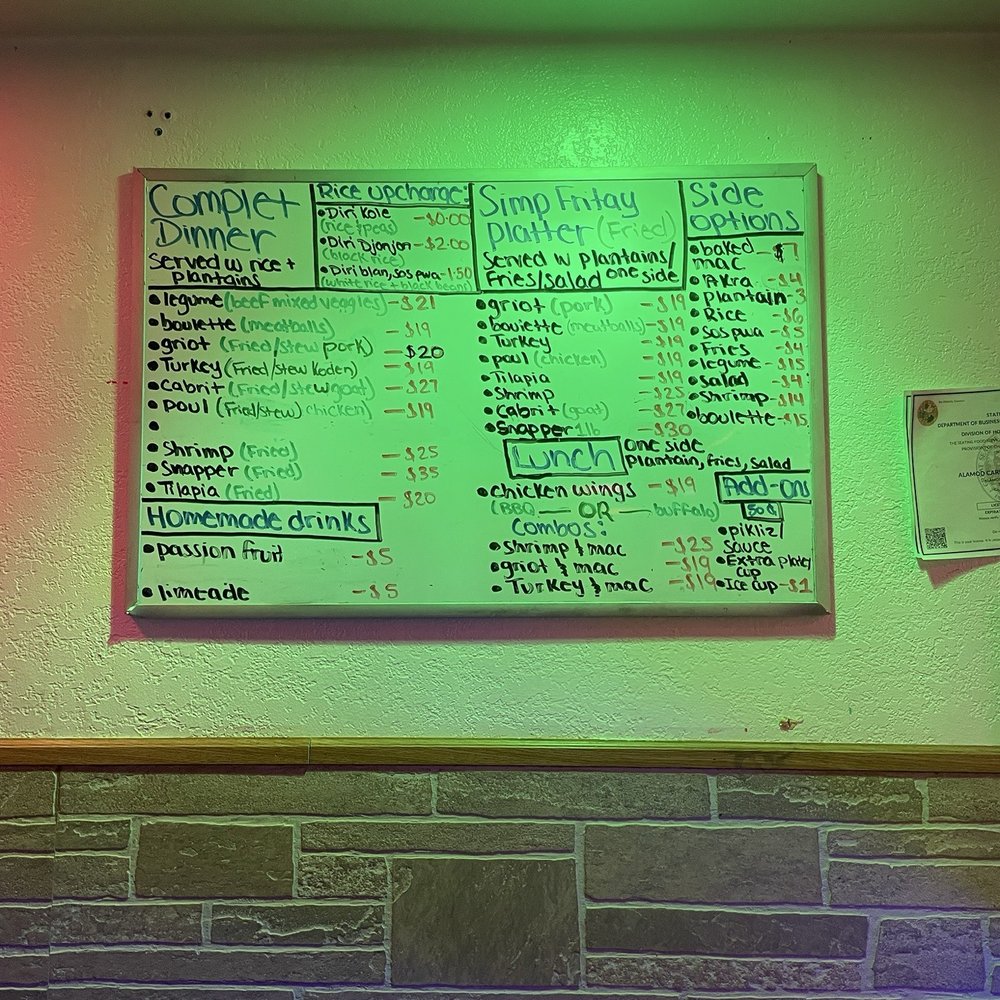 Complet
Dinner
Served w rice +
plantains
Rice upcharge:
•Diri Kole -$0.00
(rice & peas)
•Diri Djonjon-$2.00
(black rice)
•Diri blan, sos pwa-1.50
(white rice + black beans)
•legume (beef mixed veggies) -$21
•boulette (meatballs) -$19
•griot (Fried/stew pork) -$20
•Turkey (Fried/stew Koden) -$19
•Cabrit (Fried/stew goat) -$27
•poul (Fried/stew) chicken) -$19
•
•Shrimp (Fried) -$25
•Snapper (Fried) -$35
•Tilapia (Fried) -$20
Homemade drinks
•passion fruit -$5
•limeade -$5
Simp Fritay
platter (Fried)
Served w plantains/
Fries/salad one side
•griot (pork) -$19
•boulette (meatballs)-$19
•Turkey -$19
•poul (chicken) -$19
•Tilapia -$19
•Shrimp -$25
•Cabrit (goat) -$27
•Snapper 1lb -$30
Lunch one side
plantain, fries, salad
•chicken wings -$19
(BBQ — OR — buffalo)
Combos:
•shrimp & mac -$25
•griot & mac -$19
•Turkey & mac -$19
Side
options
•baked -$7
mac
•Akra -$4
•plantain-3
•Rice -$6
•sos pwa -$5
•Fries -$4
•legume -$15
•salad -$4
•Shrimp -$14
•boulette -$15
Add-ons
50¢
•pikliz/
sauce
•Extra plate/
cup
•Ice cup-$1
STATE
DEPARTMENT OF BUSINES
DIVISION OF HO
ALAMOD CAR